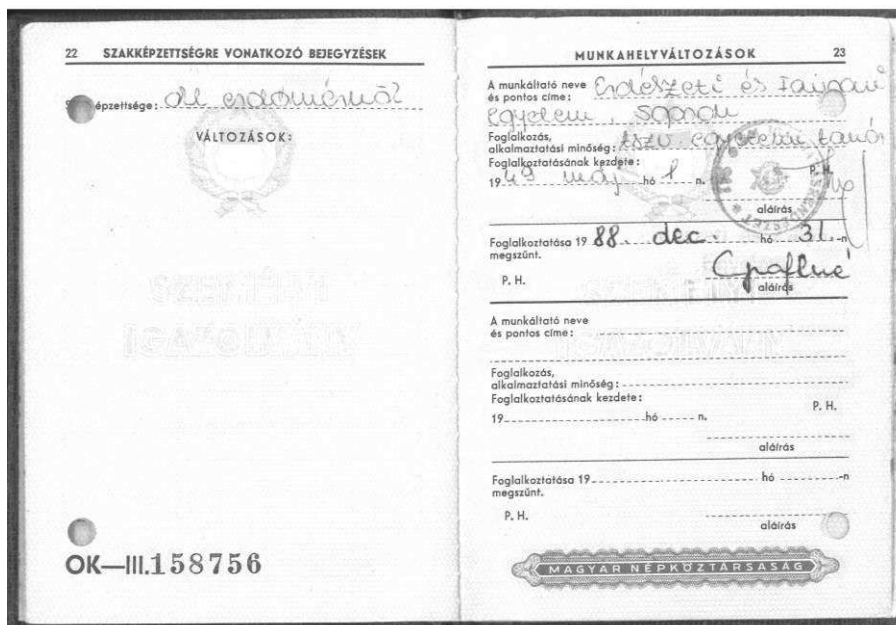 22 SZAKKÉPZETTSÉGRE VONATKOZÓ BEJEGYZÉSEK
épzettsége: okl erdőmérnök
VÁLTOZÁSOK:
SZEMÉLYI
IGAZOLVÁNY
OK—III.158756
MUNKAHELYVÁLTOZÁSOK 23
A munkáltató neve
és pontos címe: Erdészeti és Faipari
Egyetem, Sopron
Foglalkozás,
alkalmaztatási minőség: tszv. egyetemi tanár
Foglalkoztatásának kezdete:
1949 máj hó 1 n. P. H.
aláírás
Foglalkoztatása 1988. dec. hó 31.-n
megszűnt.
P. H.
aláírás
A munkáltató neve
és pontos címe:
Foglalkozás,
alkalmaztatási minőség:
Foglalkoztatásának kezdete:
19 hó n. P. H.
aláírás
Foglalkoztatása 19 hó -n
megszűnt.
P. H.
aláírás
MAGYAR NÉPKÖZTÁRSASÁG